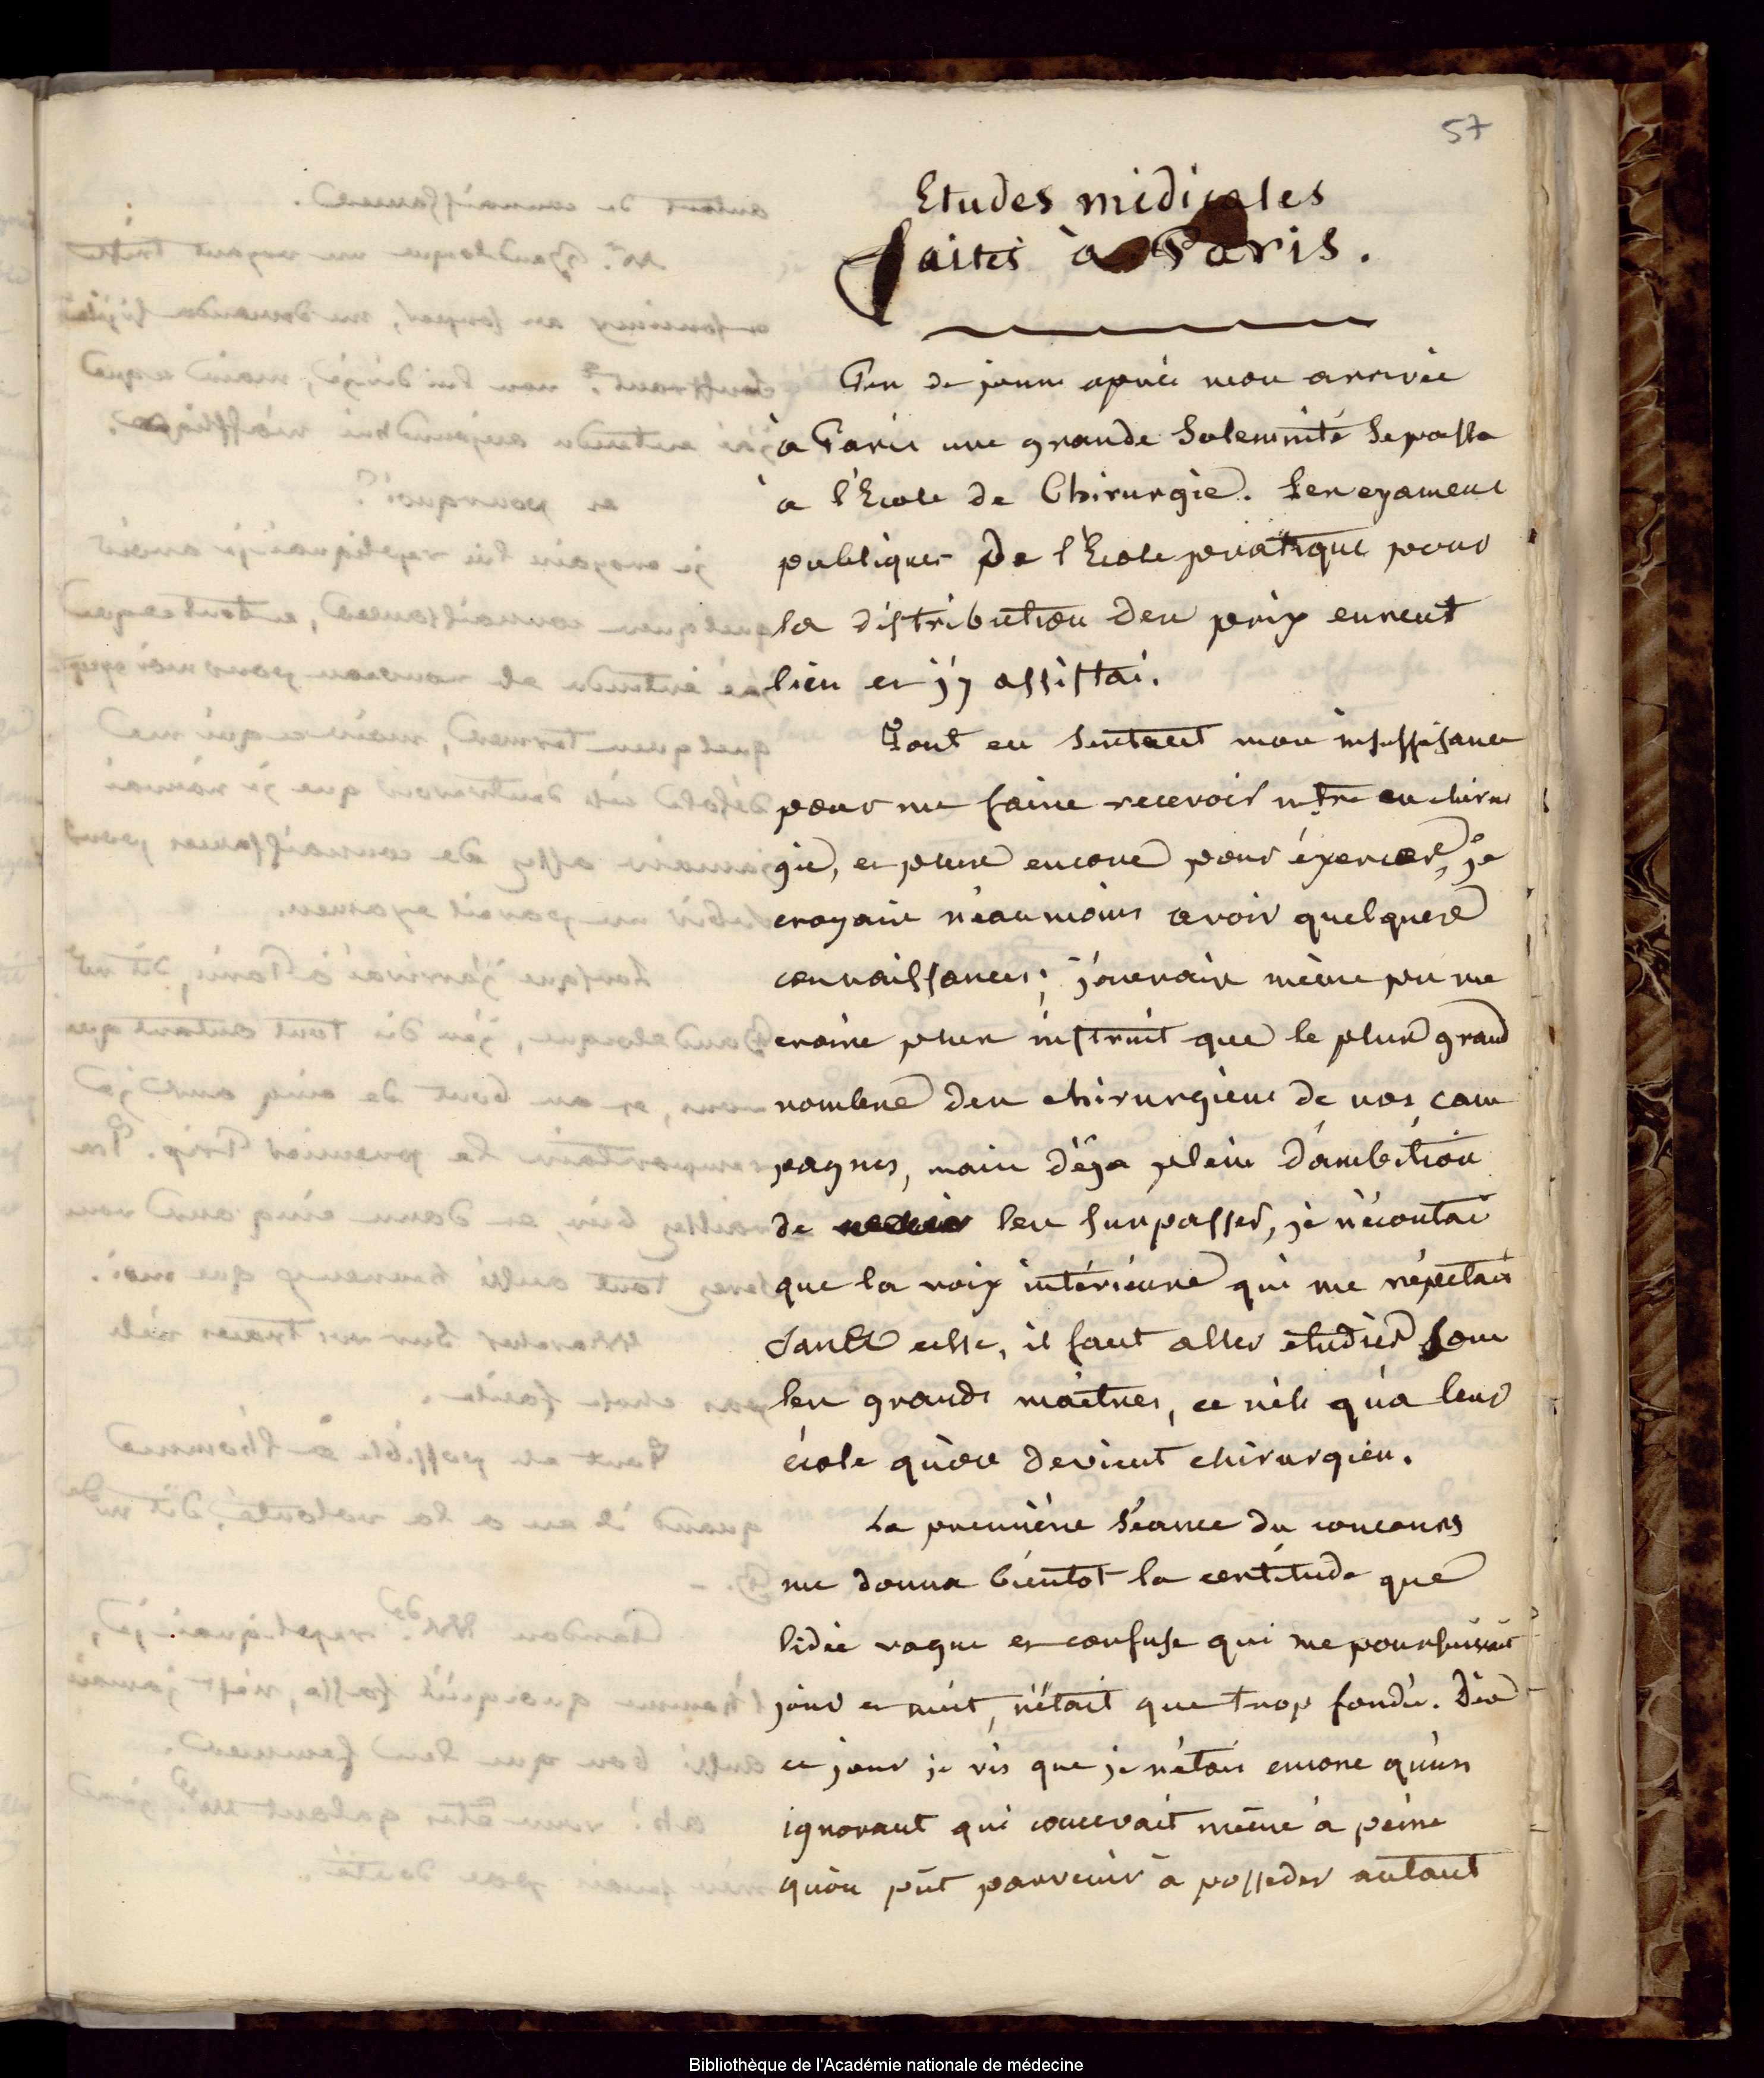 57
Etudes médicales
faites à Paris.
Peu de jours après mon arrivée
à Paris une grande Solemnité Se passa
à l'Ecole de Chirurgie. Les examens
publiques de l'Ecole pratique pour
la distribution des prix eurent
lieu et j'y assistai.
Tout en Sentant mon insuffisance
pour me faire recevoir mtre en chirur
gie, et plus encore pour éxercer, je
croyais néaumoins avoir quelques
connaissances; j'aurais même pu me
croire plus instruit que le plus grand
nombre des chirurgiens de nos cam
pagnes, mais déja plein d'ambition
de les Surpasser, je n'écoutai
que la voix intérieure qui me répétait
Sans cesse, il faut aller étudier Sous
les grands maîtres, ce n'est qu'a leur
école qu'on devient chirurgien.
La première Séance du concours
me donna bientot la certitude que
l'idée vague et confuse qui me poursuivait
jour et nuit, n'était que trop fondée. Dès
ce jour je vis que je n'étais encore qu'un
ignorant qui concevait même à peine
qu'on pût parvenir à posseder autant
Bibliothèque de l'Académie nationale de médecine